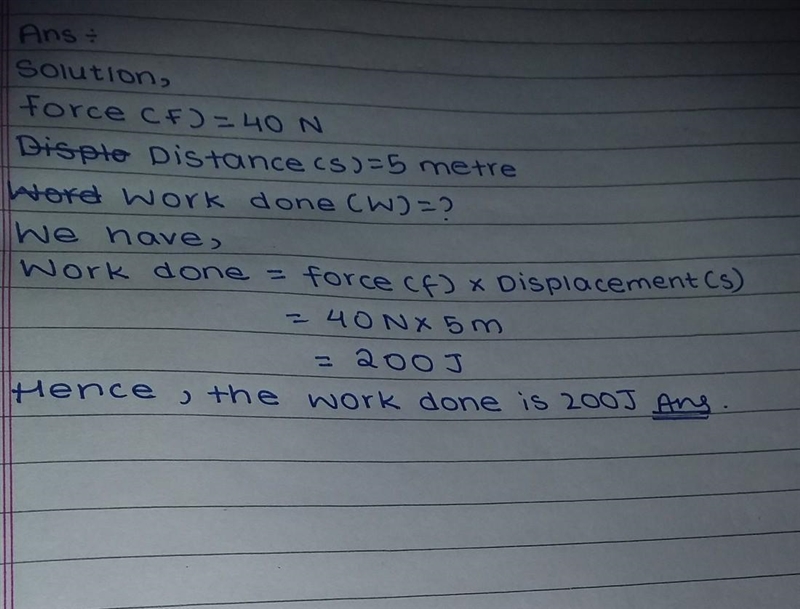 Ans÷
Solution,
force (f) = 40 N
Displa Distance (s) = 5 metre
Word Work done (W) = ?
We have,
Work done = force (f) × Displacement (s)
= 40N × 5m
= 200J
Hence, the work done is 200J Ans.